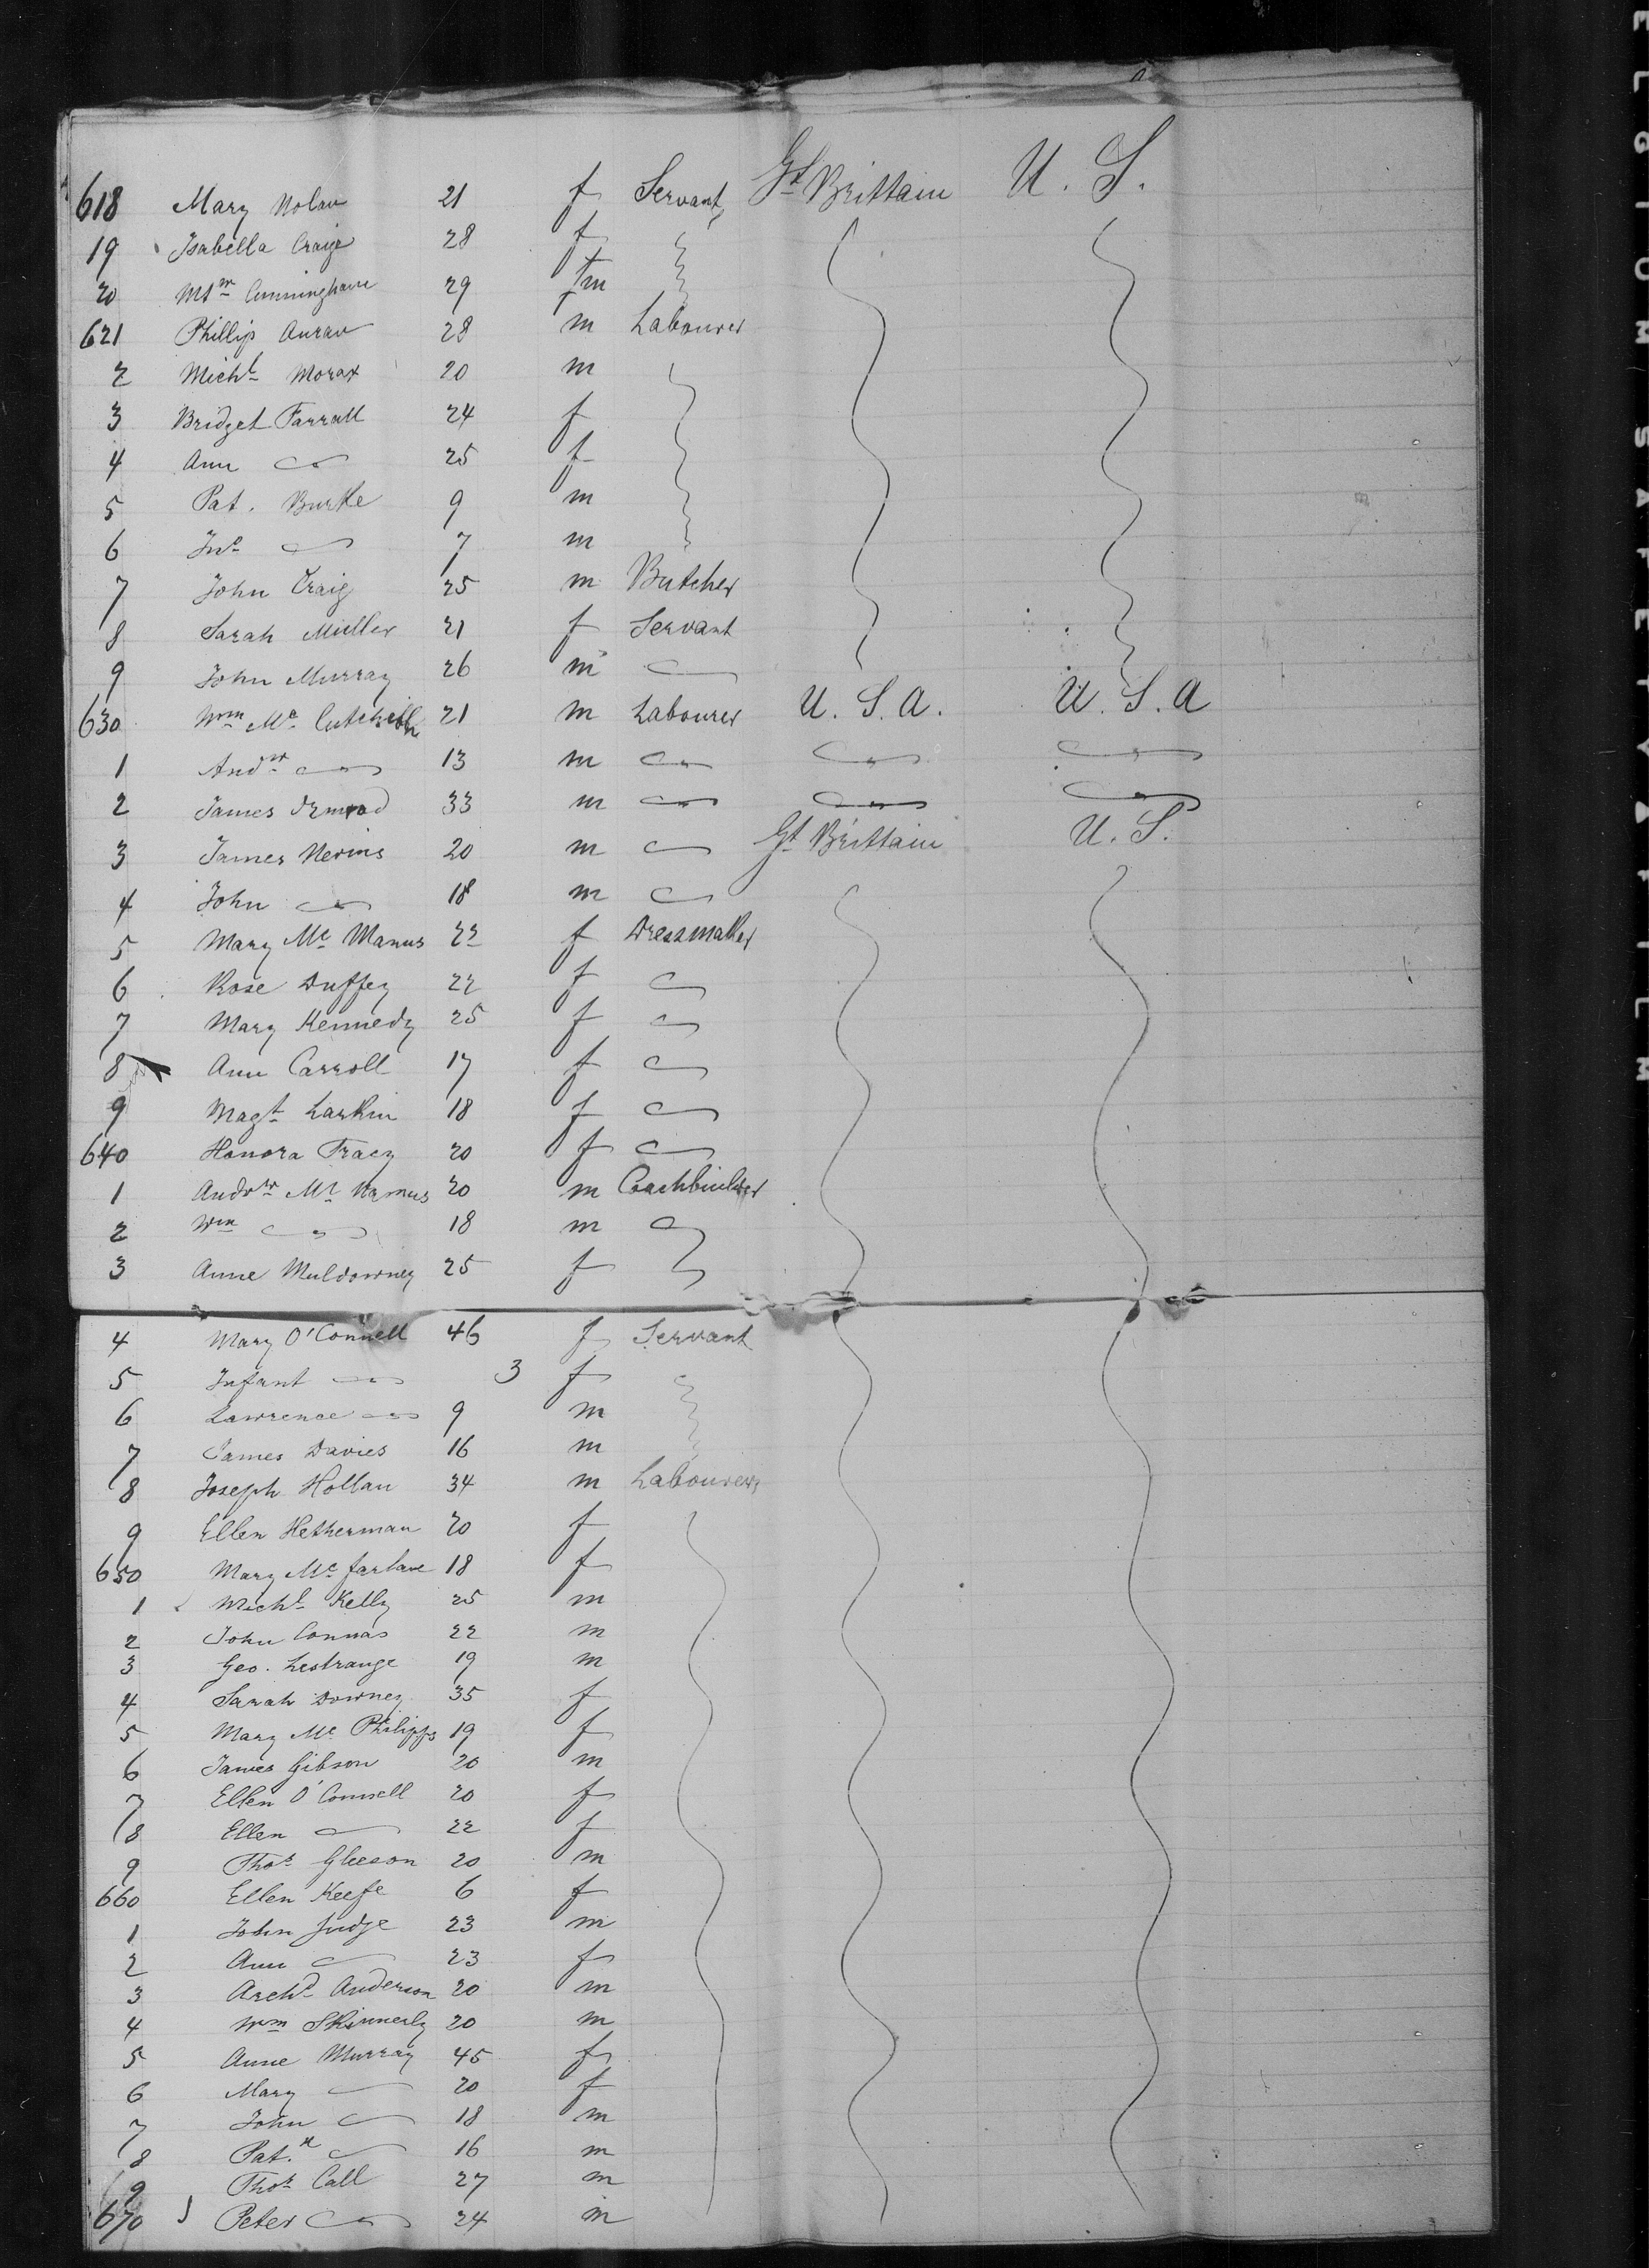 618 Mary Nolan 21 f Servant Gt Brittain U. S.
19 Isabella Craig 28 f
20 Wm Cunningham 29 m
621 Phillip 28 m Labourer
2 Michl Moran 20 m
3 Bridget Farrall 24 f
4 Ann 25 f
5 Pat. Burke 9 m
6 Jno 7 m
7 John Craig 25 m Butcher
8 Sarah Miller 21 f Servant
9 John Murray 26 m
630 Wm Mc 21 m Labourer U. S. A. U. S. A
1 Andw 13 m
2 James Ormrod 33 m
3 James Nevins 20 m Gt Brittain U. S.
4 John 18 m
5 Mary Mc Manus 22 f Dressmaker
6 Rose Duffey 22 f
7 Mary Kennedy 25 f
8 Ann Carroll 17 f
9 Magt Larkin 18 f
640 Honora Tracy 20 f
1 Andrw Mc 20 m Coachbuilder
2 Wm 18 m
3 Anne Muldowney 25 f
4 Mary O'Connell 46 f Servant
5 Infant 3 f
6 Lawrence 9 m
7 James Davies 16 m
8 Joseph Hollan 34 m Labourer
9 Ellen Hetherman 20 f
650 Mary Mc farlane 18 f
1 Michl Kelly 25 m
2 John Connas 22 m
3 Geo. Lestrange 19 m
4 Sarah Downey 35 f
5 Mary Mc Philipps 19 f
6 James Gibson 20 m
7 Ellen O'Connell 20 f
8 Ellen 22 f
9 Thos Gleeson 20 m
660 Ellen Keefe 6 f
1 John Judge 23 m
2 Ann 23 f
3 Archd Anderson 20 m
4 Wm Skinnerly 20 m
5 Anne Murray 45 f
6 Mary 20 f
7 John 18 m
8 Pat.k 16 m
9 Thos Call 27 m
670 Peter 24 m
SAFETY FILM